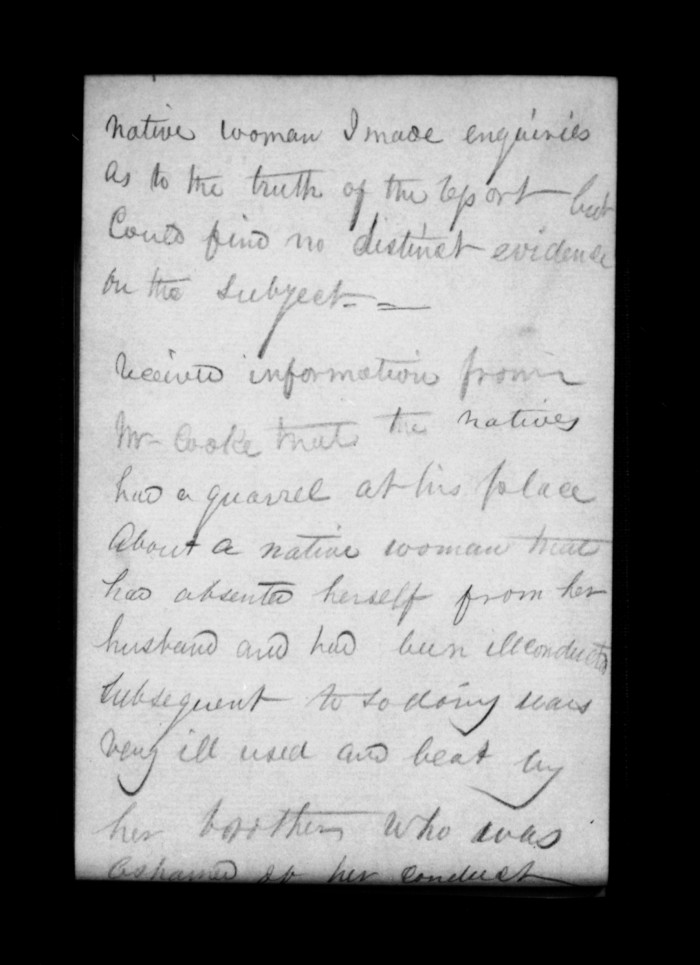 native woman I made enquiries
as to the truth of the report but
Could find no distinct evidence
on the subject - =
Received information from
Mr Cooke that the natives
had a quarrel at his place
About a native woman that
had absented herself from her
husband and had been illconducted
subsequent to so doing was
very ill used and beat by
her brother who was
ashamed of her conduct